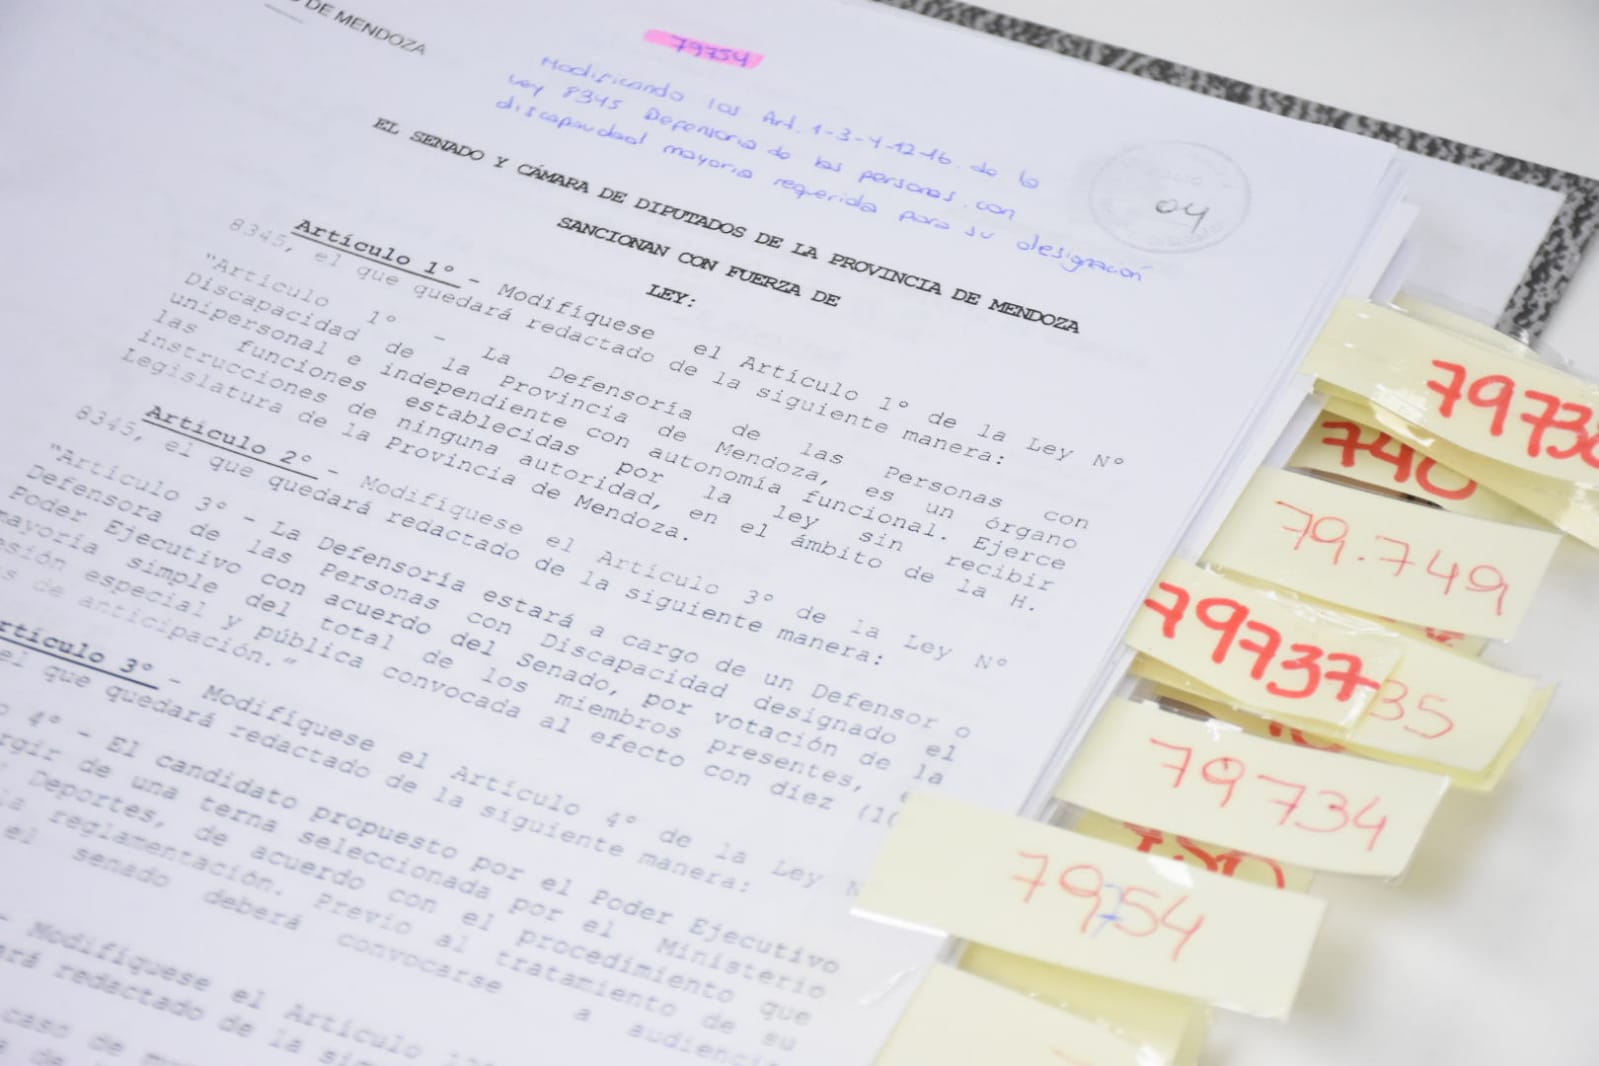 DE MENDOZA
79754
Modificando los Art. 1-3-4-12-16 de la
Ley 8345 Defensoria de las personas con
discapacidad mayoria requerida para su designación
04
EL SENADO Y CÁMARA DE DIPUTADOS DE LA PROVINCIA DE MENDOZA
SANCIONAN CON FUERZA DE
LEY:
Artículo 1° - Modifíquese el Artículo 1° de la Ley N°
8345, el que quedará redactado de la siguiente manera:
"Artículo 1° - La Defensoría de las Personas con
Discapacidad de la Provincia de Mendoza, es un órgano
unipersonal e independiente con autonomía funcional. Ejerce
las funciones establecidas por la ley sin recibir
instrucciones de ninguna autoridad, en el ámbito de la H.
Legislatura de la Provincia de Mendoza.
Artículo 2° - Modifíquese el Artículo 3° de la Ley N°
8345, el que quedará redactado de la siguiente manera:
"Artículo 3° - La Defensoría estará a cargo de un Defensor o
Defensora de las Personas con Discapacidad designado el
Poder Ejecutivo con acuerdo del Senado, por votación de la
mayoría simple del total de los miembros presentes,
especial y pública convocada al efecto con diez (10
de anticipación."
Artículo 3° - Modifíquese el Artículo 4° de la Ley N
el que quedará redactado de la siguiente manera:
4° - El candidato propuesto por el Poder Ejecutivo
de una terna seleccionada por el Ministerio
Deportes, de acuerdo con el procedimiento que
reglamentación. Previo al tratamiento de su
el senado deberá convocarse a
- Modifíquese el Artículo
redactado de la
caso de
79738
740
79.749
79737
35
79734
79754